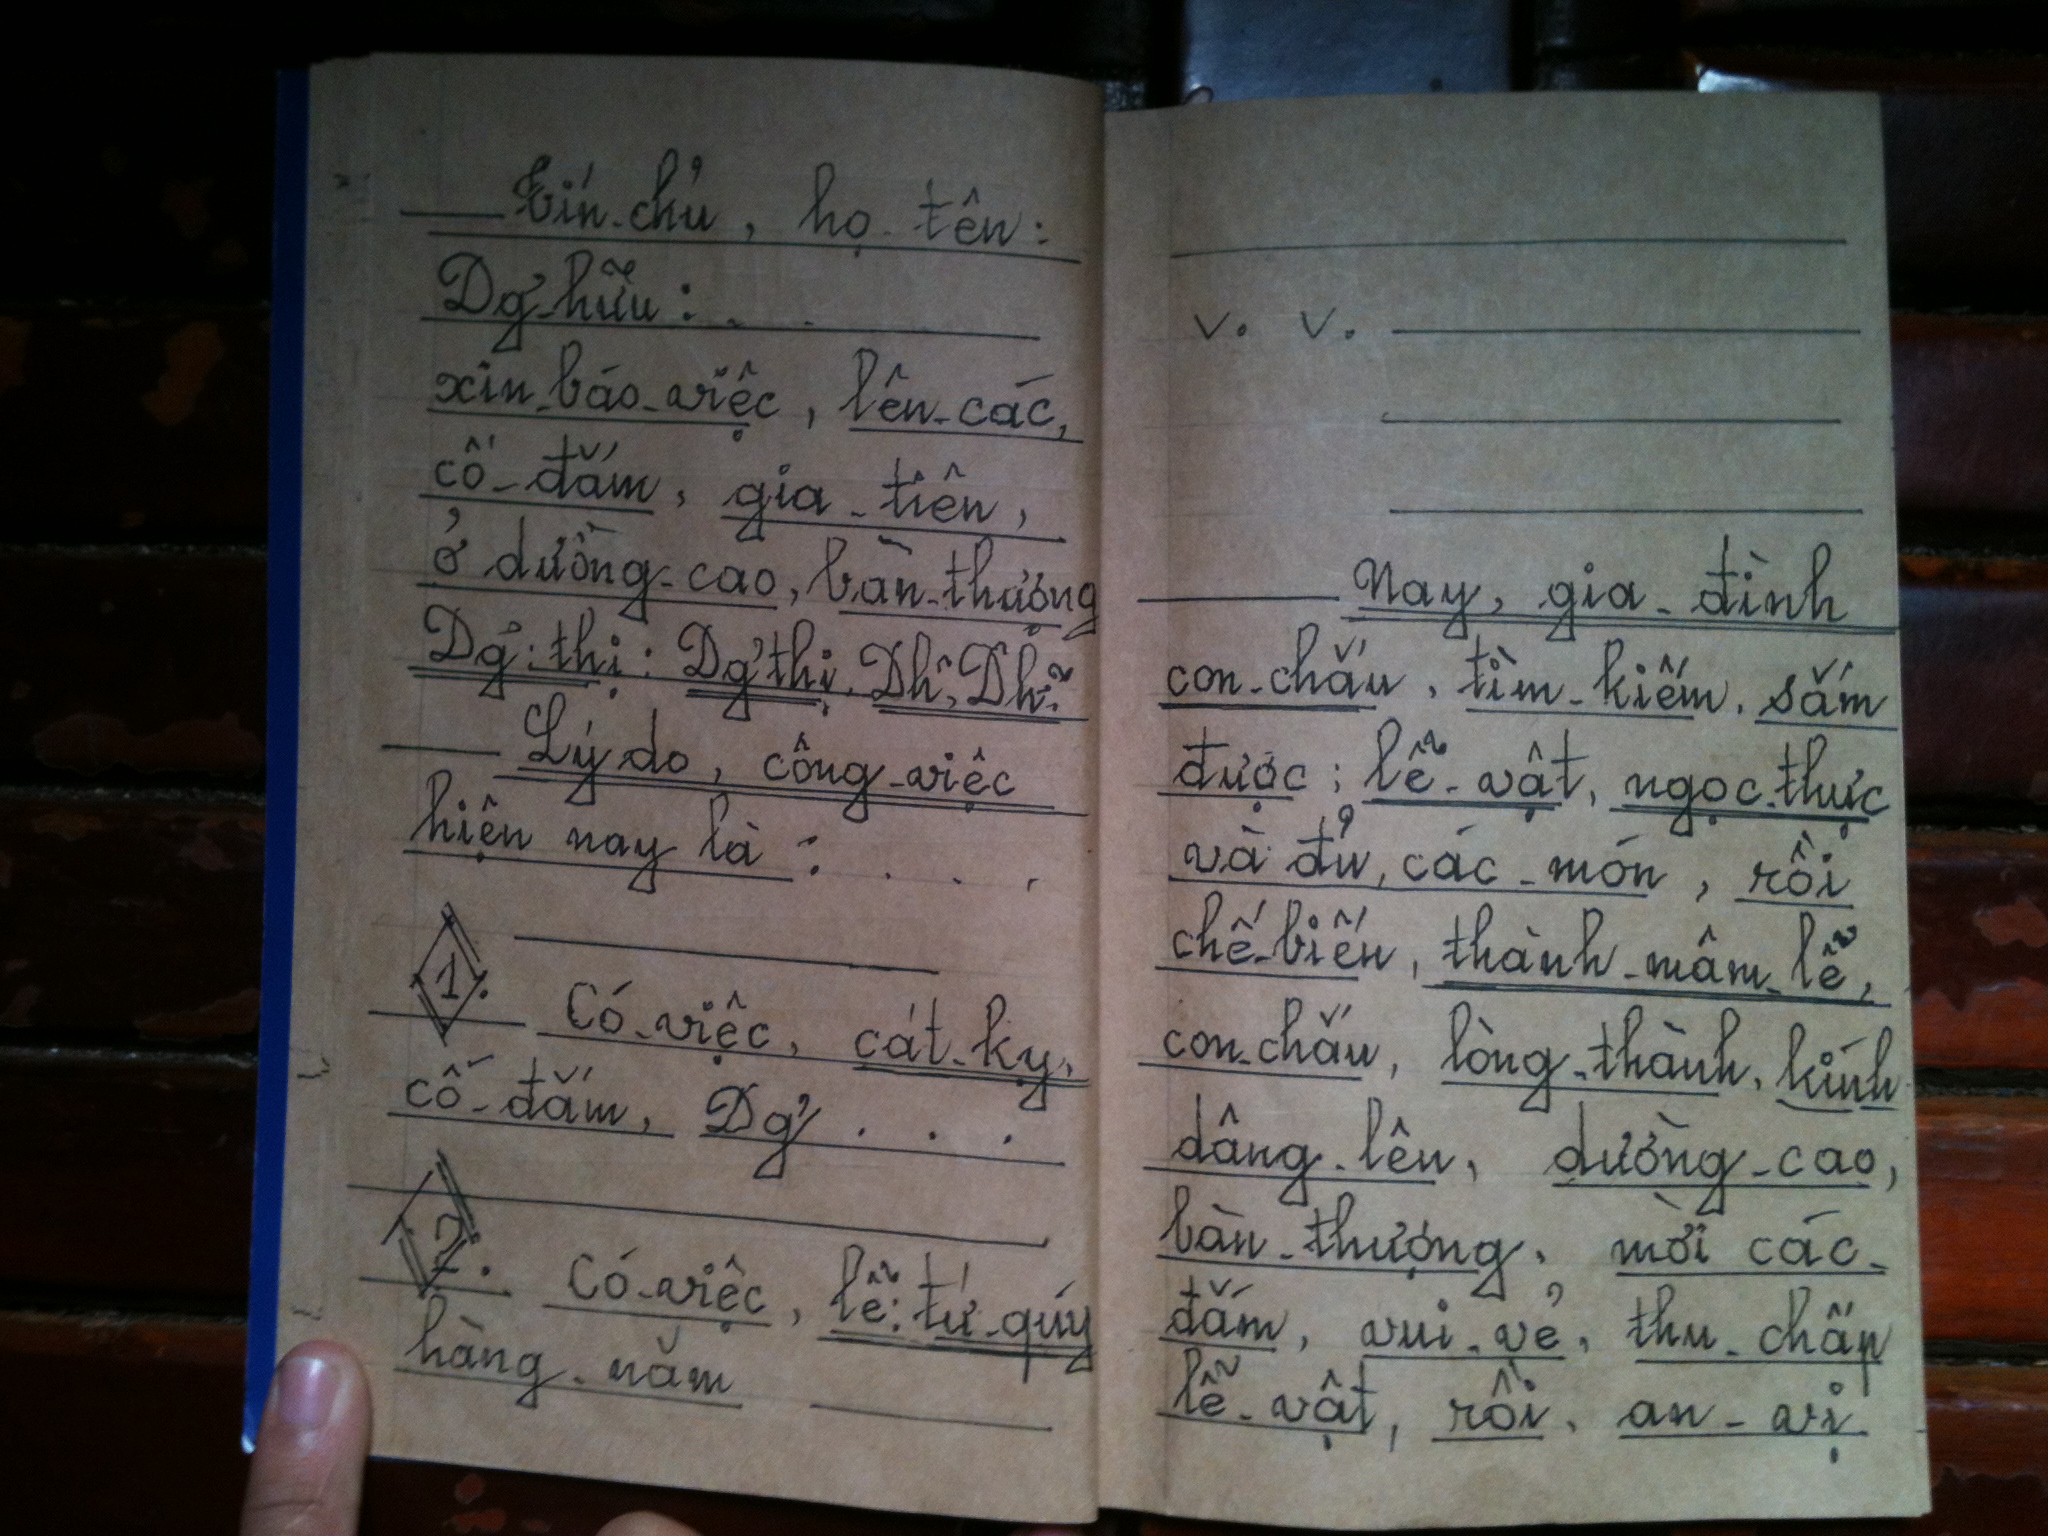 tín-chủ, họ-tên:
Dg-hữu: . .
xin-báo-việc, lên-các,
cố-đắm, gia-tiên,
ở dưồng-cao, bàn-thượng
Dg: thị: Dg thị.
Lý do, công-việc
hiện nay là : . . .
1. Có-việc, cát-kỵ,
cố-đắm, Dg . . .
2. Có-việc, lễ: tứ-qúy
hàng-năm
v. v.
Nay, gia-đình
con-chắu, tìm-kiếm. sắm
được; lễ-vật, ngọc-thực
và đủ, các-món, rồi
chế-biến, thành-mâm-lễ,
con-chắu, lòng-thành, kính
dâng-lên, dường-cao,
bàn-thượng. mời các-
đắm, vui-vẻ, thu-chấp
lễ-vật, rồi. an-vị